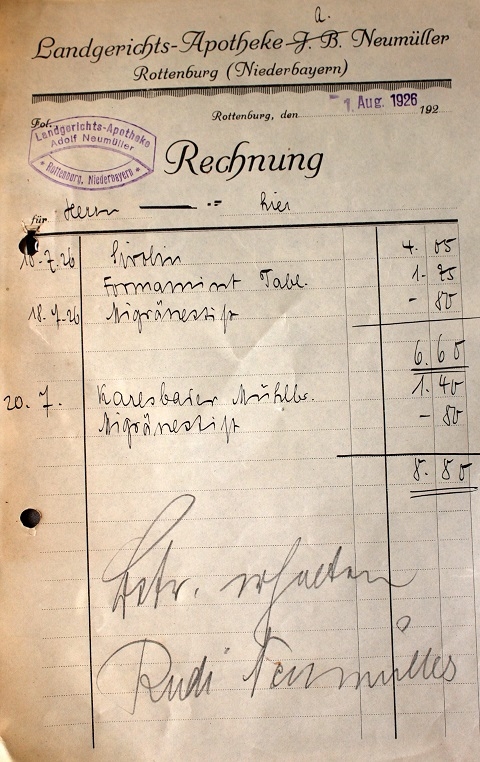 a.
Landgerichts-Apotheke J. B. Neumüller
Rottenburg (Niederbayern)
Fol.
Rottenburg, den 1. Aug. 1926 192
Landgerichts-Apotheke
Adolf Neumüller
Rottenburg, Niederbayern
Rechnung
für Herrn hier
18.7.26 Sirolin 4.05
Formamint Tabl. 1.75
18.7.26 Migränestift - 80
6.60
20. 7. Karlsbader Mühlbr. 1.40
Migränestift - 80
8.80
Betr. erhalten
Rudi Neumüller